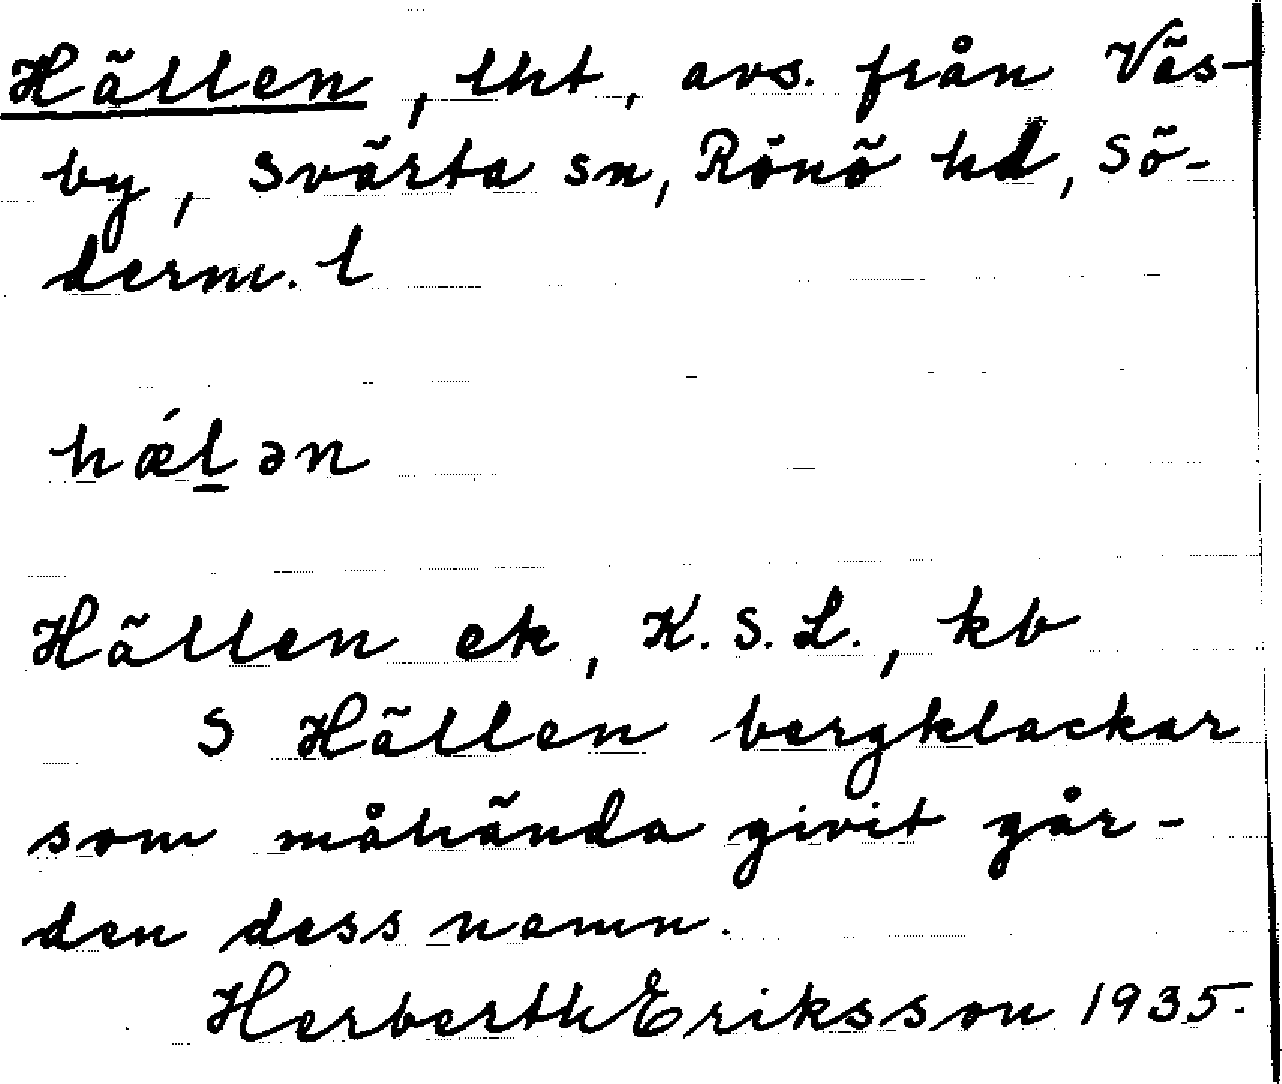 Hällen, lht, avs. från Väs-
by, Svärta sn, Rönö hd, Sö-
derm. l
hǽl̠ən
Hällen ek, K.S.L., kb
S Hällen bergklackar
som måhända givit går-
den dess namn.
Herberth Eriksson 1935.